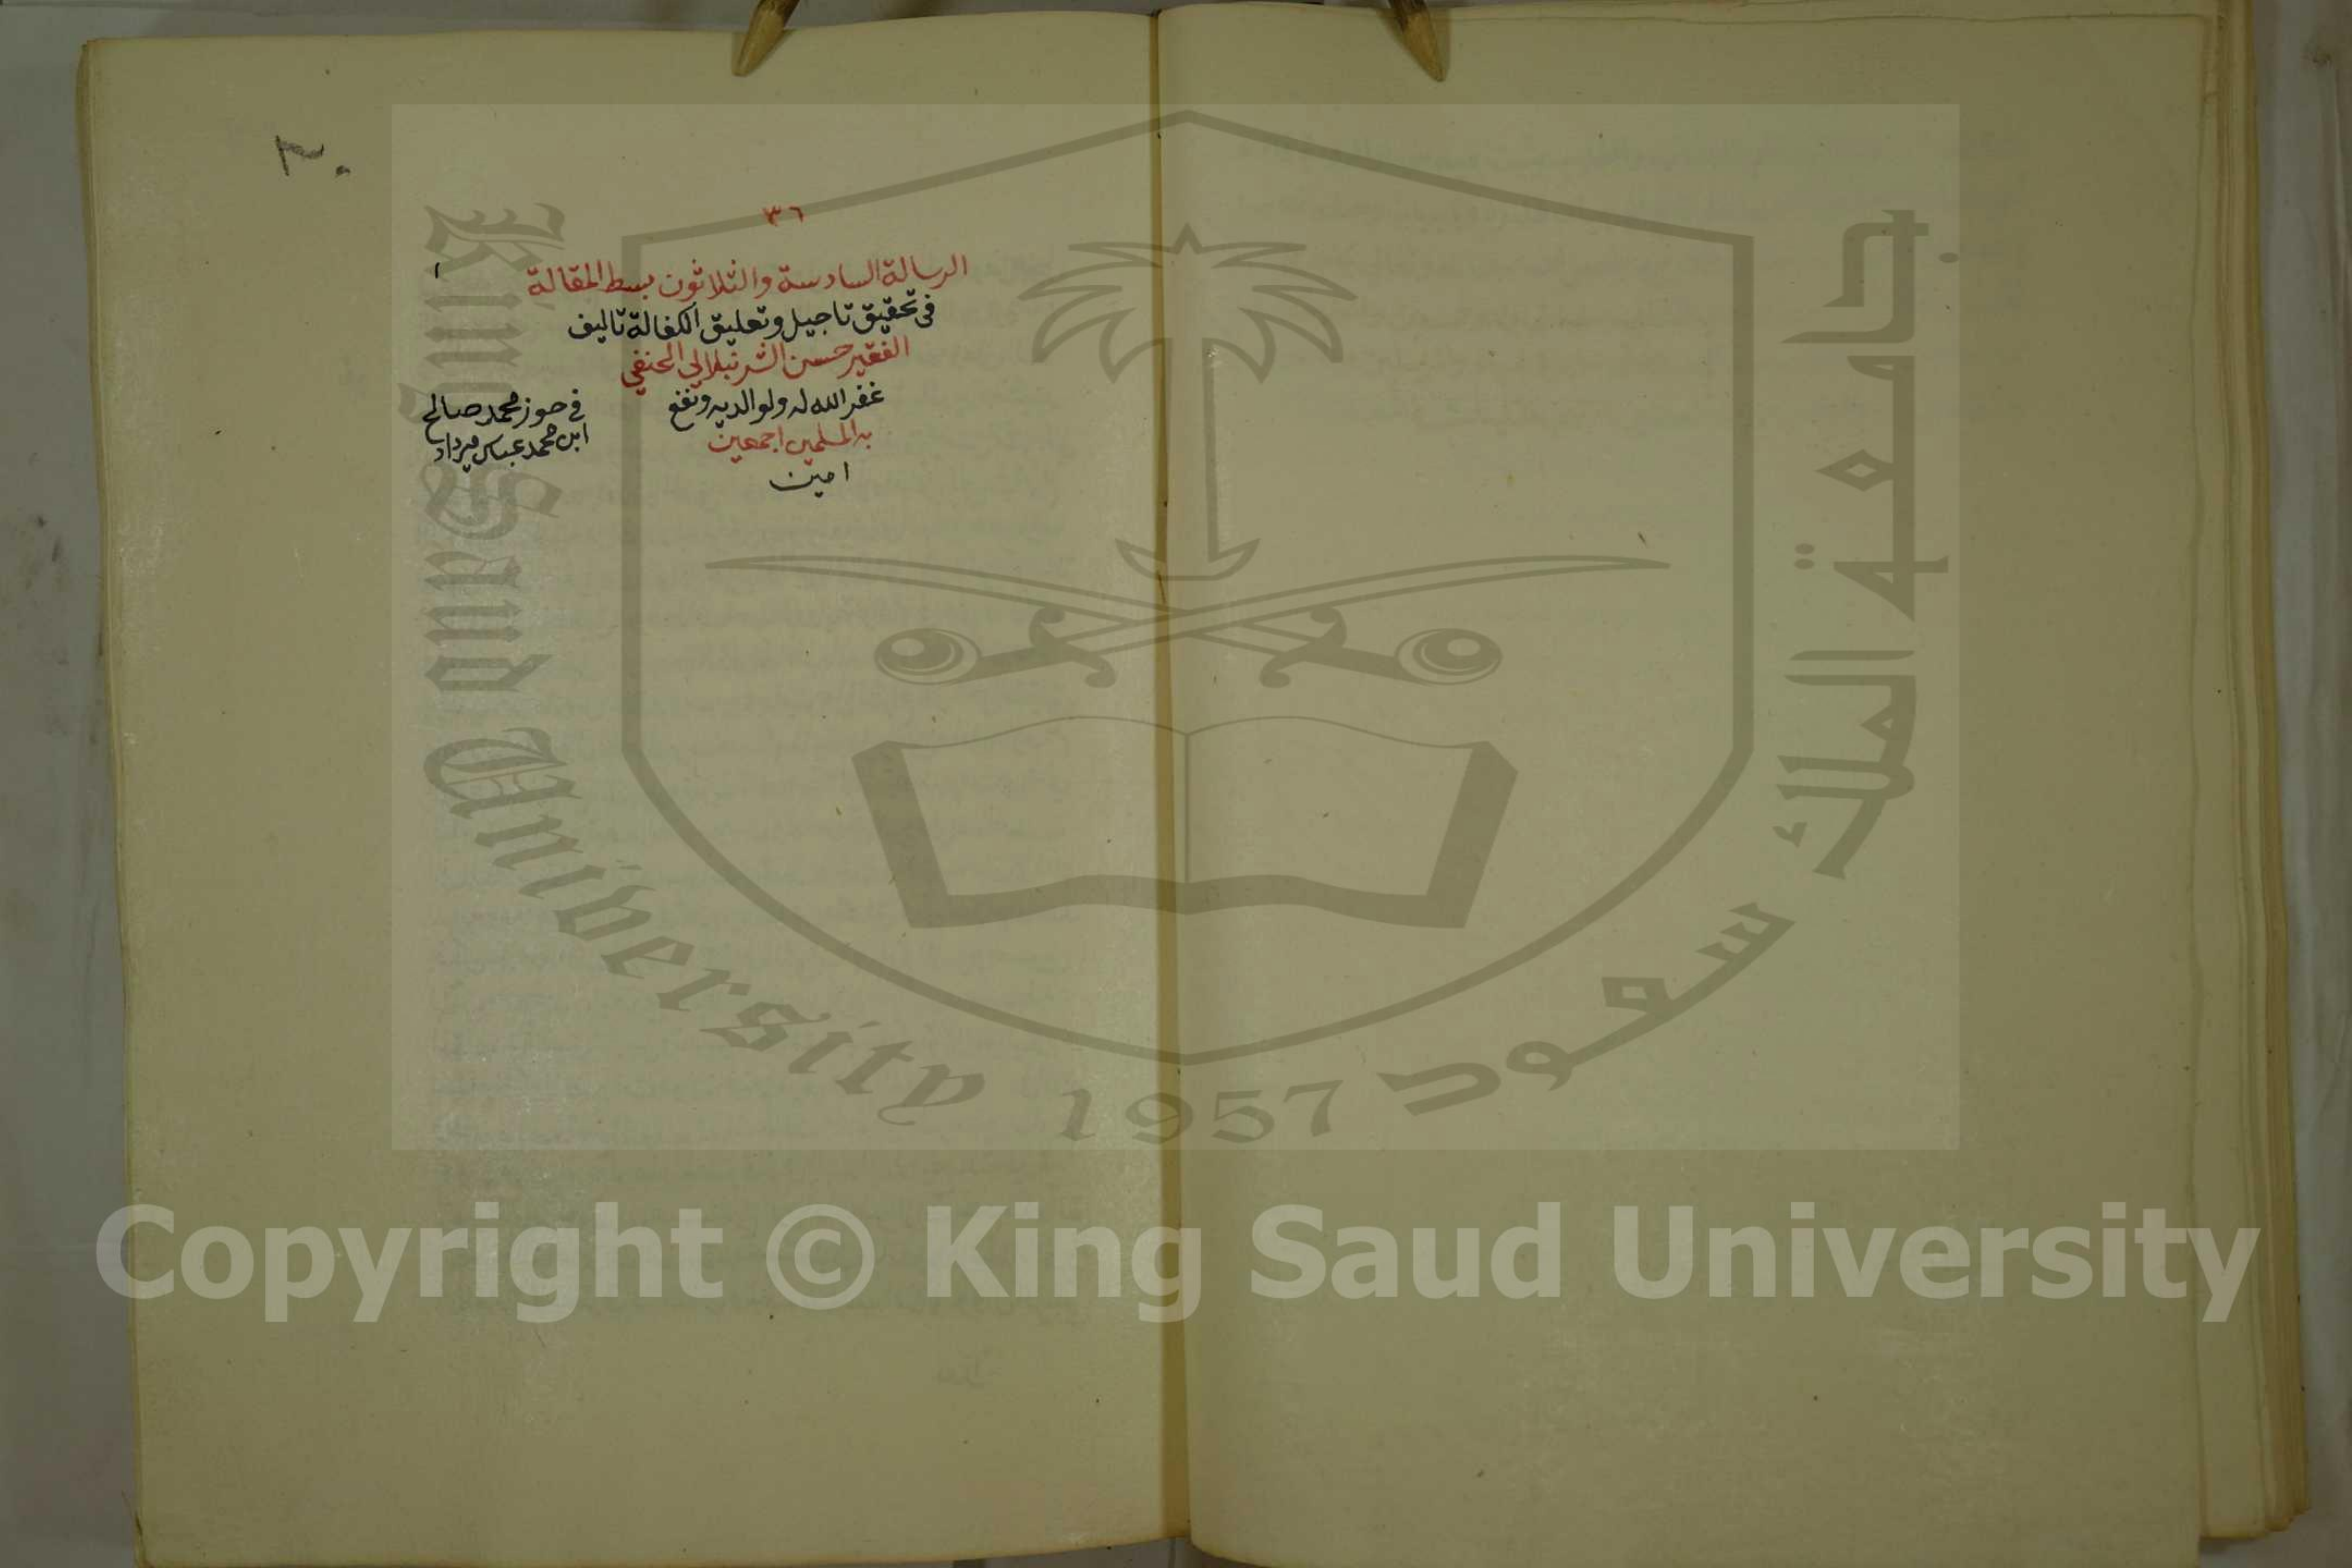 ٣٦
الرسالة السادسة والثلاثون بسط المقالة
في تحقيق تاجيل وتعليق الكفالة تاليف
الفقير حسن الشرنبلالي الحنفي
غفر الله له ولوالديه ونفع
به المسلمين اجمعين
امين
١
في حوز محمد صالح
ابن محمد عباس ميرداد
King Saud University
1957
جامعة الملك سعود
Copyright © King Saud University